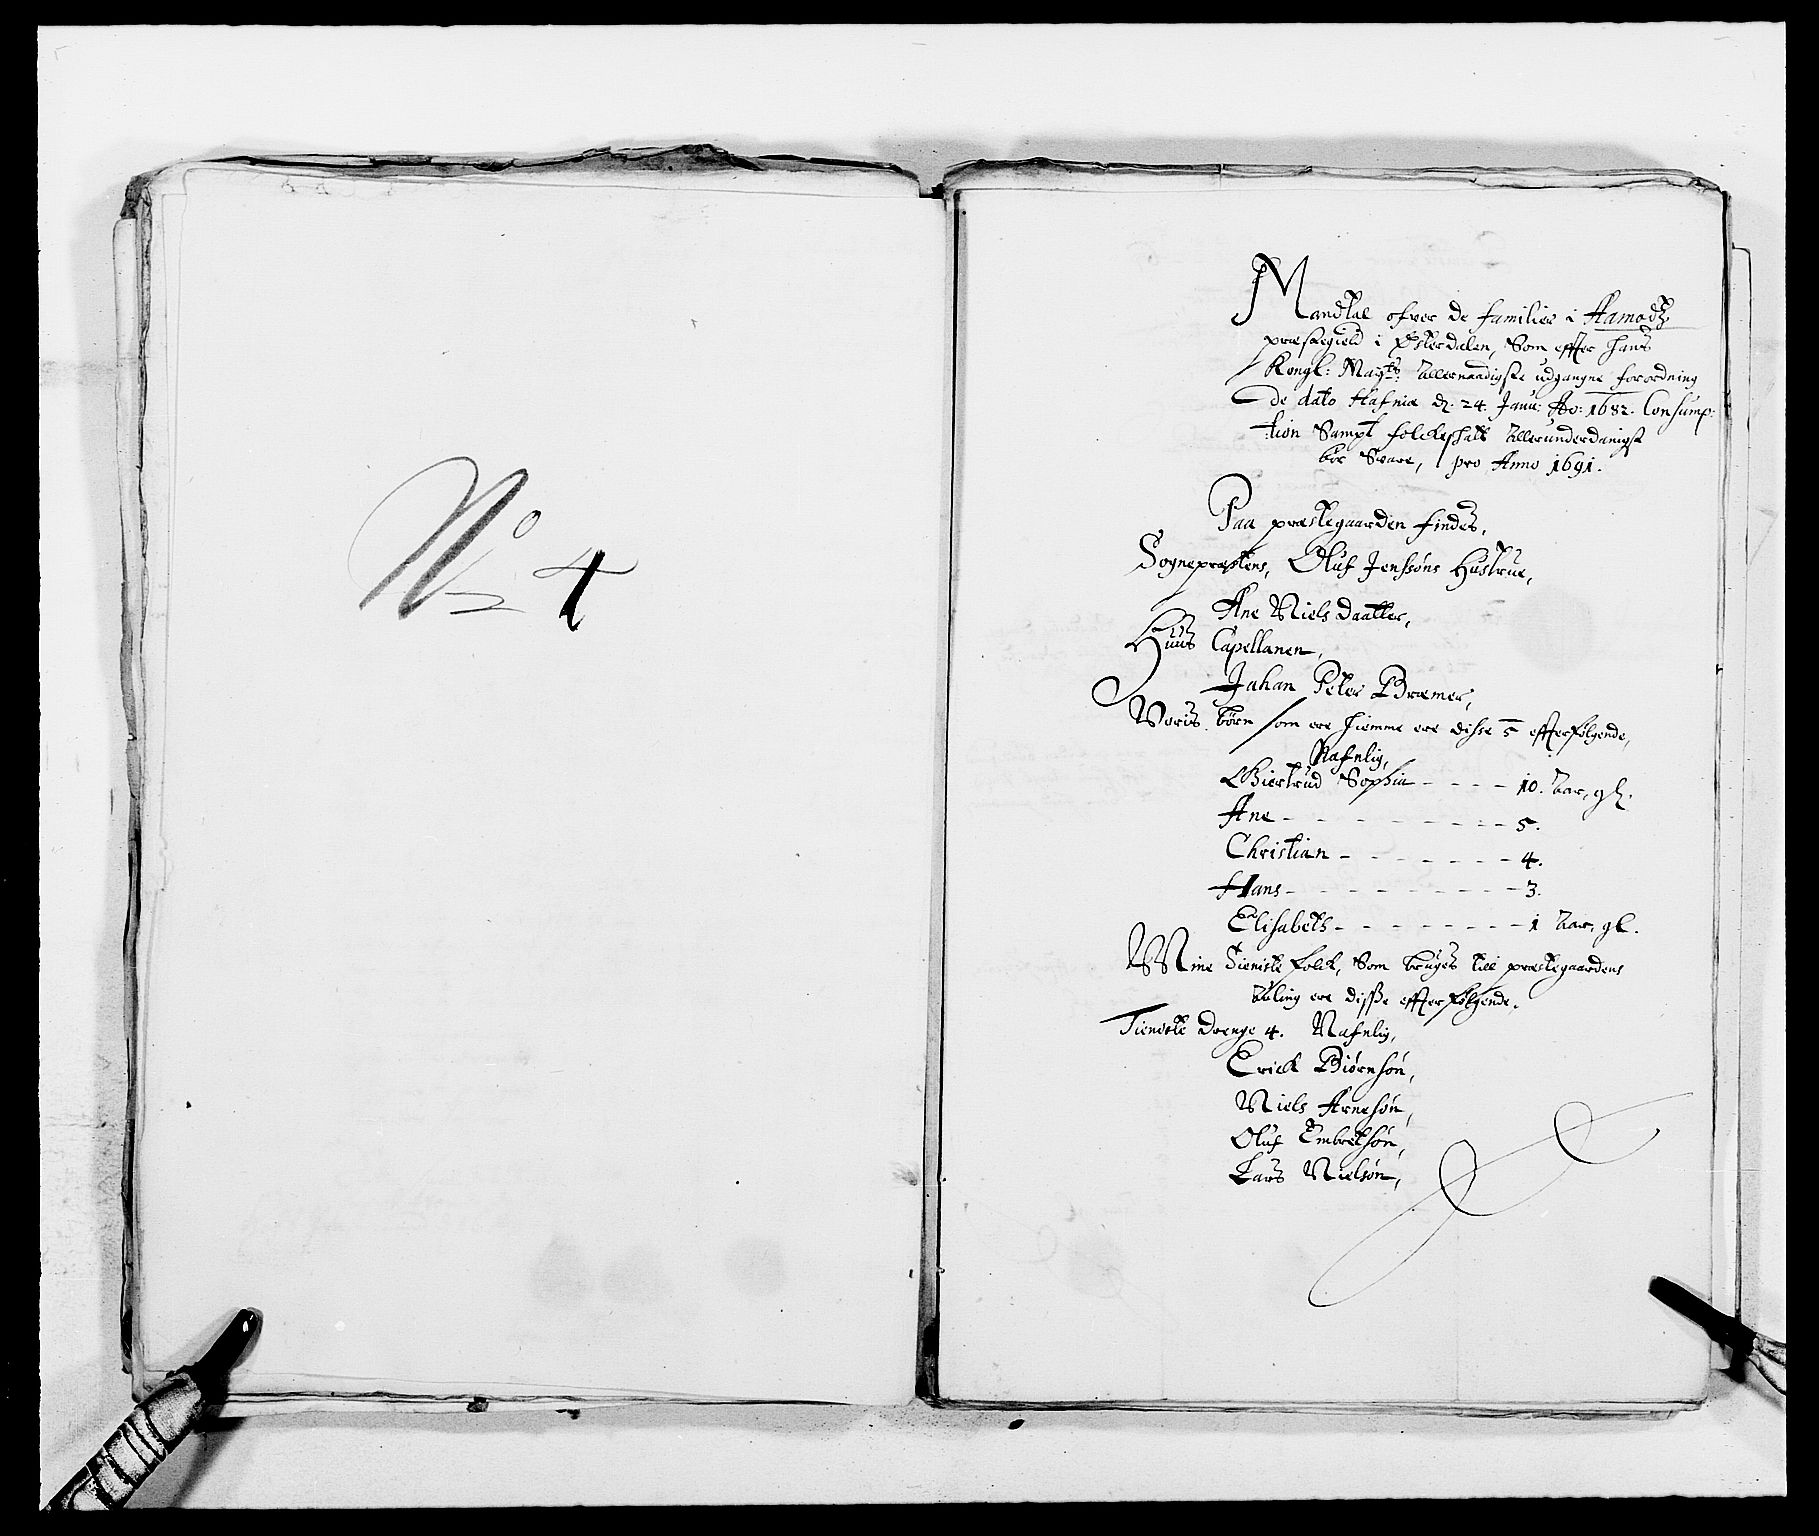 No 4
Mandtal ofver de familier i Aamodtz
præstegield i Østerdalen, Som effter hans
Kongl: Maytz: Allernaadigste udgangne forordning
De dato Hafniæ d. 24. Janu: Ao: 1682. Consump:
tion Sampt folckeskatt Allerunderdanigst
bør Svare, pro Anno 1691.
Paa præstegaarden findes,
Sognepræstens, Oluf Jenssøns Hustrue,
Ane Niels Daatter,
Huus Capellanen,
Johan Peter Bræmer,
Voris børn som ere hiemme ere disse 5 effterfølgende,
Nafnlig,
Giertrud Sophia - - - - 10. Aar, gl.
Ane - - - - - - - - - 5.
Christian - - - - - - - 4.
Hans - - - - - - - - - 3.
Elisabeth - - - - - - - - 1 Aar, gl.
Mine Tieniste folck, Som bruges till præstegaardens
Auling ere disse effterfølgende.
Tieniste Drenge 4. Nafnlig,
Erick Biørnsøn,
Niels Arnesøn,
Oluf Embretsøn,
Lars Nielsøn,